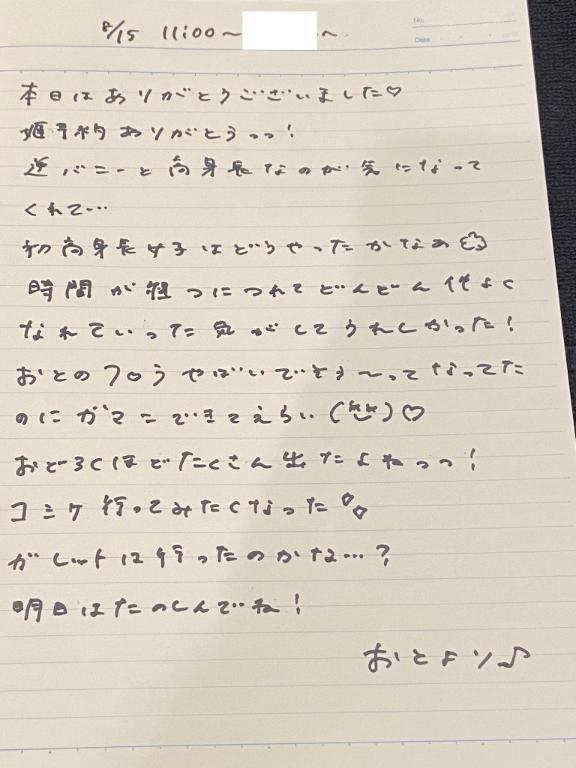 8/15 11:00~ へ
No.
Date
本日はありがとうございました♡
姫予約ありがとうっっ!
逆バニーと高身長なのが気になって
くれて…
初高身長女子はどうやったかなぁ
時間が経つにつれてどんどん仲よく
なれていった気がしてうれしかった!
おとのフロうやばいでそう〜ってなってた
のにガマンできてえらい(^^)♡
おどろくほどたくさん出たよねっっ!
コミケ行ってみたくなった
ガレットは行ったのかな…?
明日はたのしんでね!
おとより♪